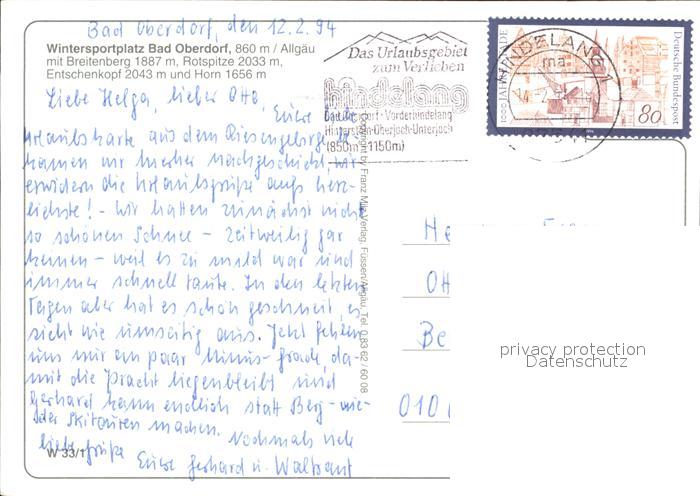 Bad Oberdorf, den 12.2.94
Wintersportplatz Bad Oberdorf, 860 m / Allgäu
mit Breitenberg 1887 m, Rotspitze 2033 m,
Entschenkopf 2043 m und Horn 1656 m
Das Urlaubsgebiet
zum Verlieben
hindelang
Bad Oberdorf · Vorderhindelang
Hinterstein · Oberjoch · Unterjoch
(850m - 1150m)
HINDELANG 1
ma
Deutsche Bundespost
80
Liebe Helga, lieber Otto,
Eure liebe
Urlaubskarte aus dem Riesengebirge be-
kamen wir hierher nachgeschickt, wir
erwidern die Urlaubsgrüße aufs herz-
lichste! - Wir hatten zunächst nicht
so schönen Schnee - zeitweilig gar
keinen - weil es zu mild war und
immer schnell taute. In den letzten
Tagen aber hat es schön geschneit, es
sieht wie umseitig aus. Jetzt fehlen
uns nur ein paar Minus-grade, da-
mit die Pracht liegenbleibt und
Gerhard kann endlich statt Berg- wie-
der Skitouren machen.
Nochmals viele
liebe Grüße
Eure Gerhard u. Waltraut
W 33/1
Copyright by Franz Milz Verlag, Füssen/Allgäu, Tel. 0 83 62 / 60 08
He
Ott
Be
010
privacy protection
Datenschutz